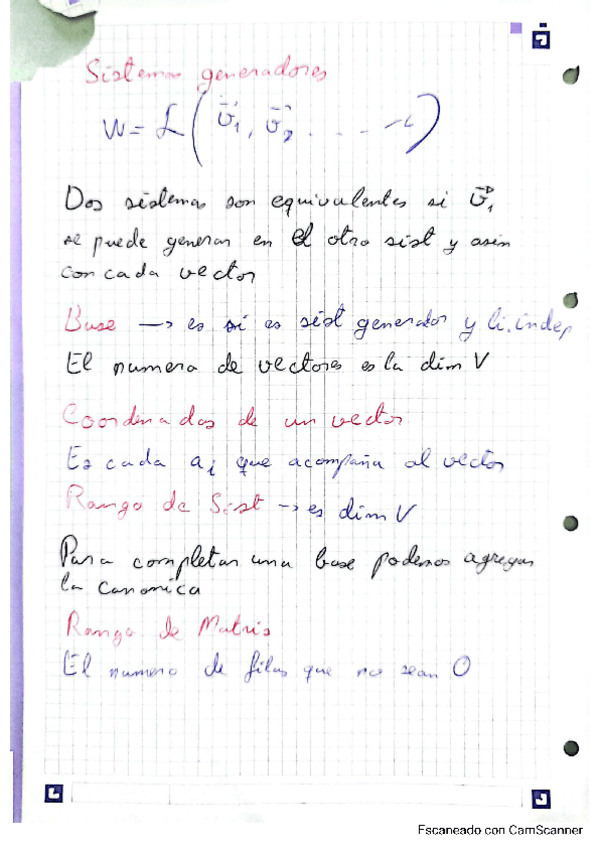 Sistemas generadores
W = L ( v⃗1, v⃗2 . . . . )
Dos sistemas son equivalentes si v⃗1
se puede generar en el otro sist y asin
con cada vector
Base → es si es sist generador y li. indep
El numero de vectores es la dim V
Coordenadas de un vector
Es cada ai que acompaña al vector
Rango de Sist → es dim V
Para completar una base podemos agregar
la canonica
Rango de Matris
El numero de filas que no sean 0
Escaneado con CamScanner